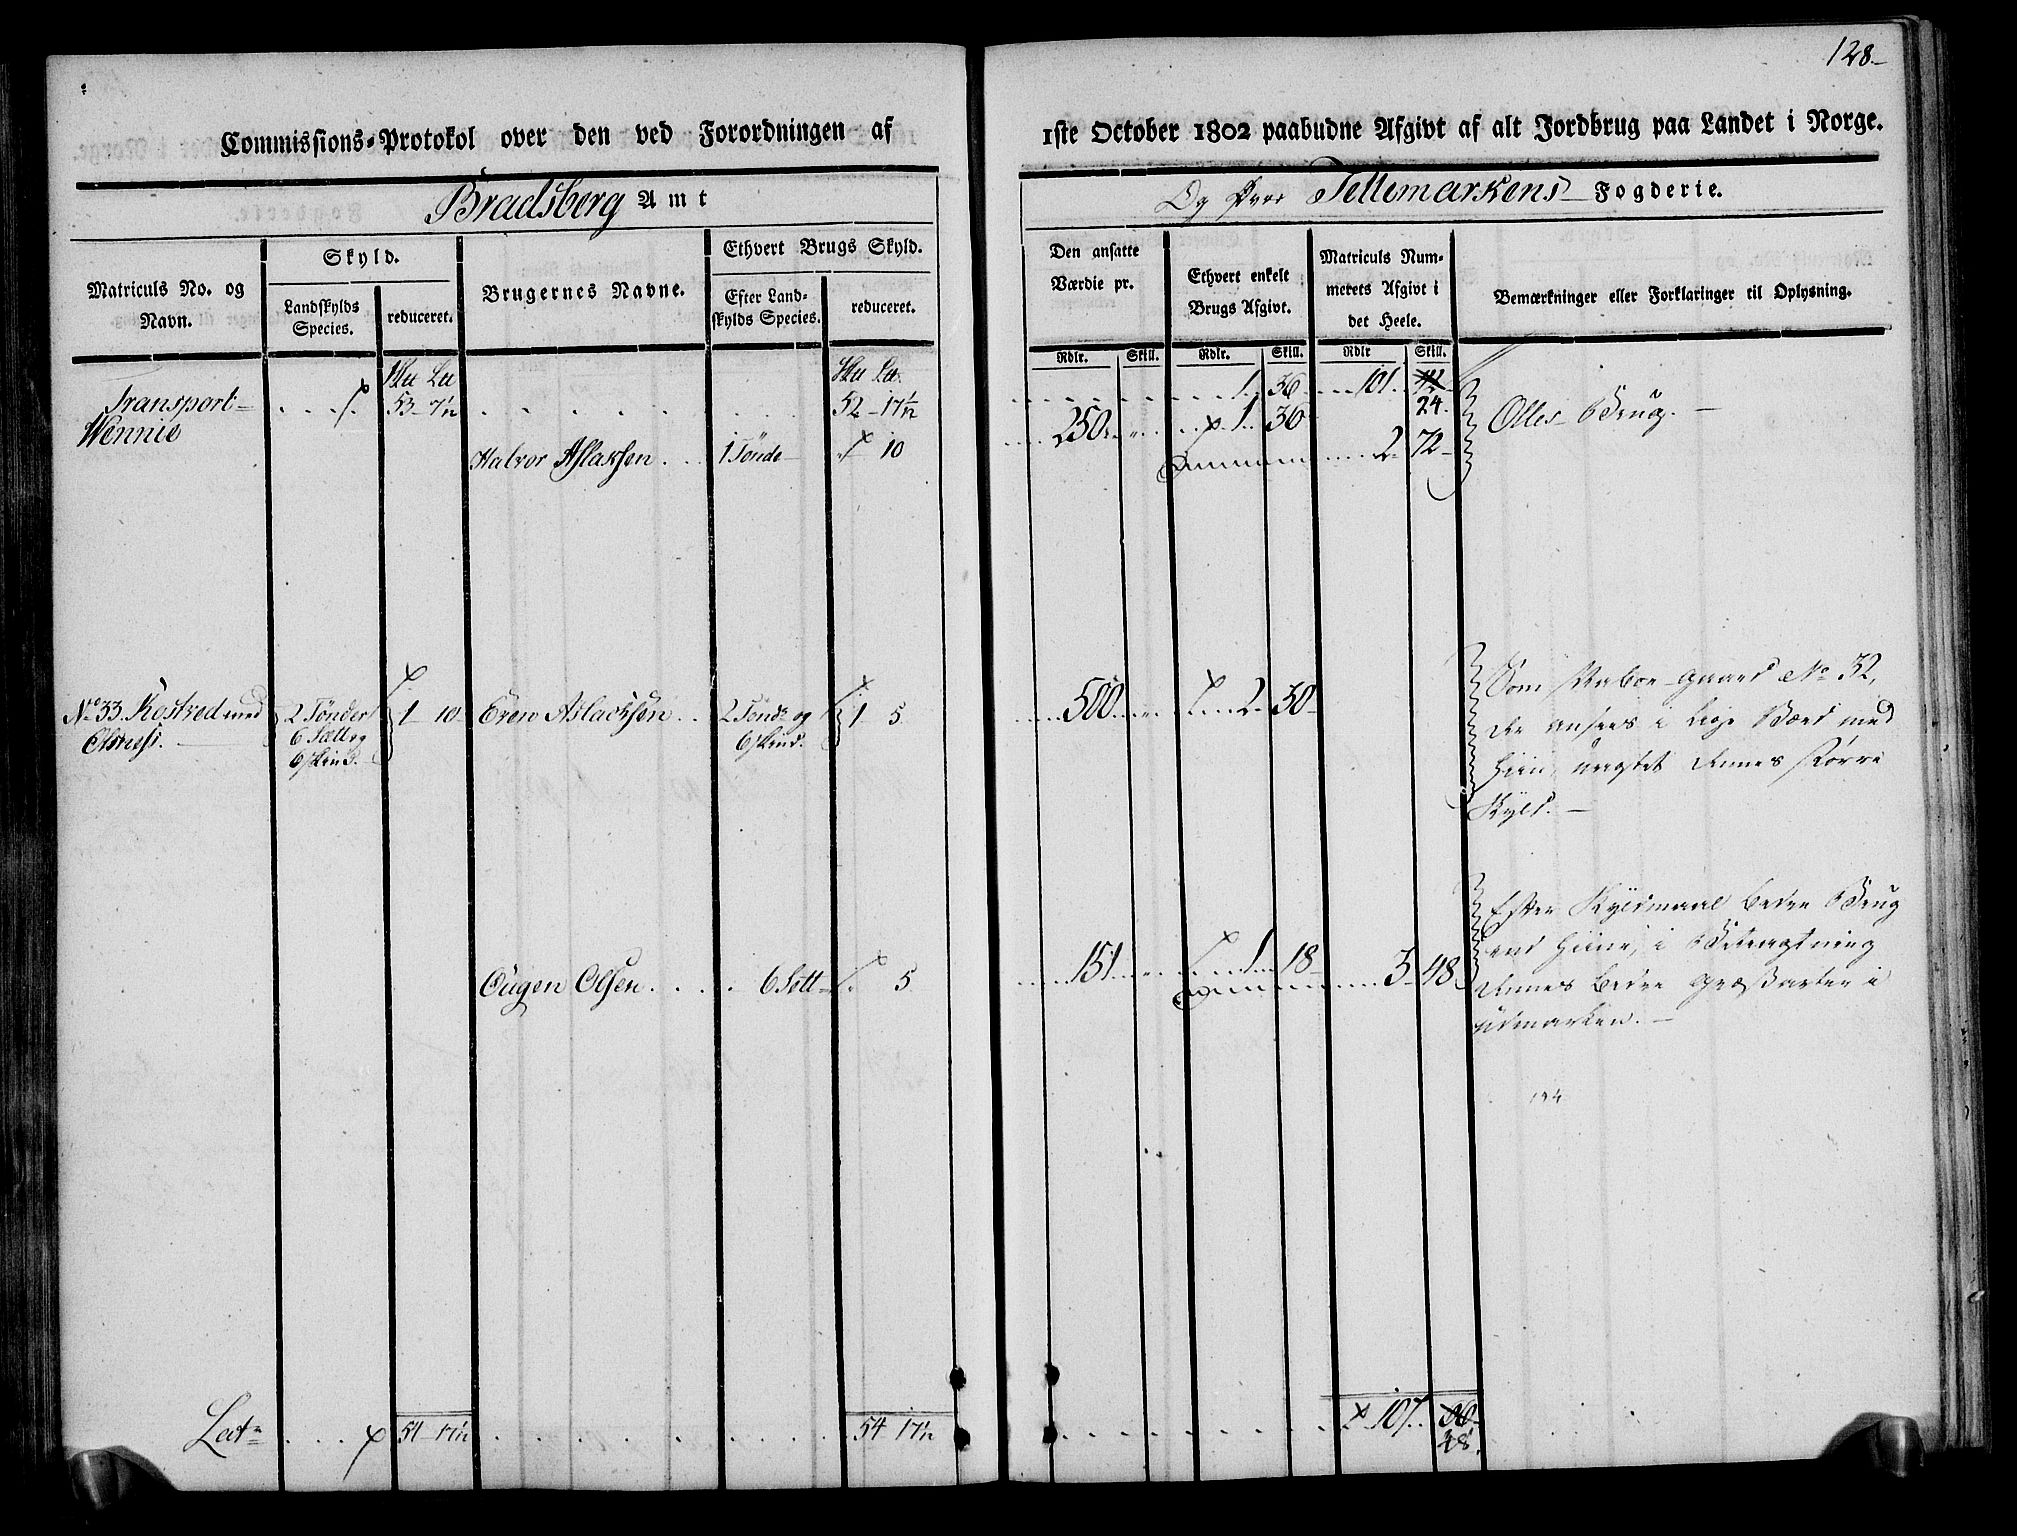 128
Commissions-Protokol over den ved Forordningen af 1ste October 1802 paabudne Afgivt af alt Jordbrug paa Landet i Norge.
Bradsberg Amt
Og Tellemarkens Fogderie.
Matriculs No. og Navn.
Skyld.
Landskylds Species.
reduceret.
Brugernes Navne.
Ethvert Brugs Skyld.
Efter Landskylds Species.
reduceret.
Den ansatte Værdie pr.
Ethvert enkelt Brugs Afgivt.
Matriculs Nummerets Afgivt i det Heele.
Bemærkninger eller Forklaringer til Oplysning.
Rdlr. Skill. Rdlr. Skill. Rdlr Skill.
Transport 53 7½ 52 17½ 1 36 101 24
Wennie
Halvor Aslaksen 1 Tønde 10 250 1 36 2 72
Olles Brug.
No 33 Kostved med
2 Tønder
6 Sætt og
6 skind.
1 10 Even Aslacksen 2 Tønd og
6 skind.
1 5 500 2 30
Som Naboe-gaard No 32,
der ansees i lige Værd med
Hiin, uagtet dennes større
Skyld.
Ougen Olsen 6 Sett 5 151 1 18 3 48
Efter Skyldmaal bedre Brug
end Hiine, i Betragtning
dennes bedre Græsarter i
Udmarken.
Lat 54 17½ 54 17½ 107